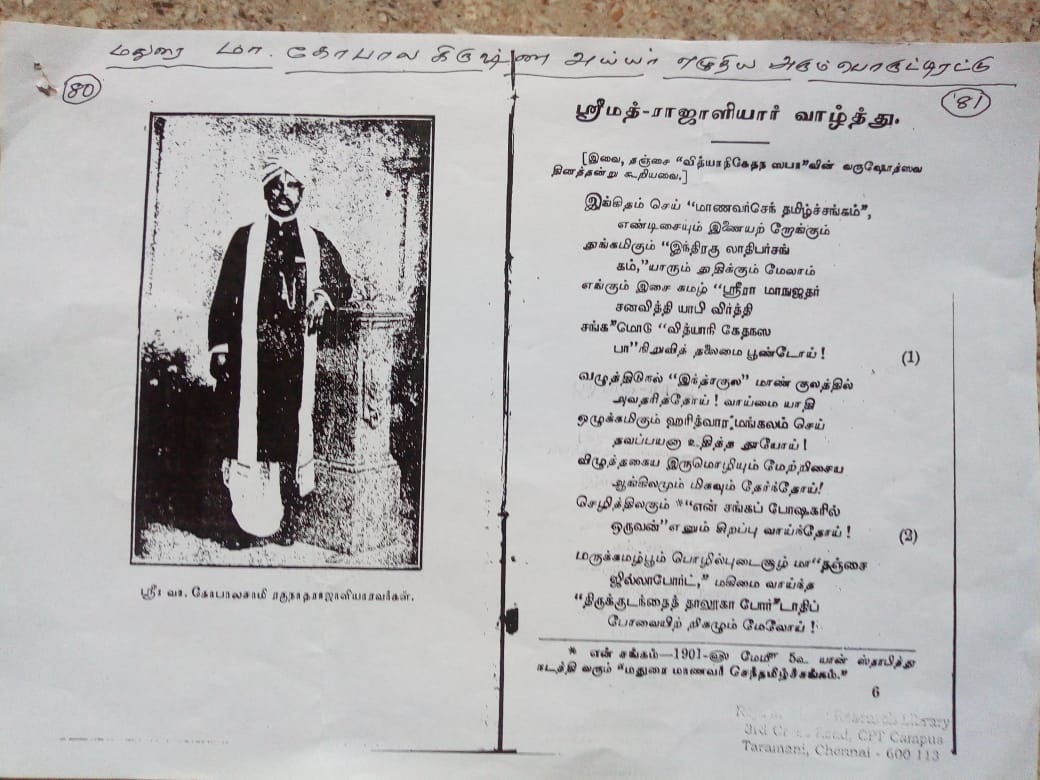 மதுரை மா. கோபால கிருஷ்ண அய்யர் எழுதிய அரும்பொருட்டிரட்டு
80
ஸ்ரீஃ வா. கோபாலசாமி ரகுநாதராஜாளியாரவர்கள்.
81
ஸ்ரீமத்-ராஜாளியார் வாழ்த்து.
[இவை, தஞ்சை “வித்யாநிகேதந ஸபா”வின் வருஷோத்ஸவ
தினத்தன்று கூறியவை.]
இங்கிதம் செய் “மாணவர்செந் தமிழ்ச்சங்கம்”,
எண்டிசையும் இணையற் றோங்கும்
துங்கமிகும் “இந்திரகு லாதிபர்சங்
கம்,”யாரும் துதிக்கும் மேலாம்
எங்கும் இசை கமழ் “ஸ்ரீரா மாநுஜதர்
சனவித்தி யாபி விர்த்தி
சங்க”மொடு “வித்யாநி கேதநஸ
பா”நிறுவித் தலைமை பூண்டோய் !
(1)
வழுத்திடுநல் “இந்த்ரகுல” மாண் குலத்தில்
அவதரித்தோய் ! வாய்மை யாதி
ஒழுக்கமிகும் ஹரித்வார மங்கலம் செய்
தவப்பயனா உதித்த தூயோய் !
விழுத்தகைய இருமொழியும் மேற்றிசைய
ஆங்கிலமும் மிகவும் தேர்ந்தோய்!
செழித்திலகும் *“என் சங்கப் போஷகரில்
ஒருவன்”எனும் சிறப்பு வாய்ந்தோய் !
(2)
மருக்கமழ்பூம் பொழில்புடைசூழ் மா“தஞ்சை
ஜில்லாபோர்ட்,” மகிமை வாய்ந்த
“திருக்குடந்தைத் தாலூகா போர்”டாதிப்
பேரவையிற் றிகழும் மேலோய் !
* என் சங்கம்—1901-ஹு மேமீ 5உ யான் ஸ்தாபித்து
நடத்தி வரும் “மதுரை மாணவர் செந்தமிழ்ச்சங்கம்.”
6
Research Library
3rd Cross Road, CPT Campus
Taramani, Chennai - 600 113